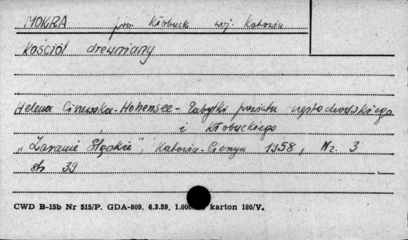 MOKRA pow. Kłobuck woj. Katowice
Kościół drewniany
Helena Ciszewska-Hohensee - Zabytki powiatu częstochowskiego
i Kłobuckiego
„Zaranie Śląskie”, Katowice-Cieszyn 1958, Nr. 3
str 39
CWD B-15b Nr 515/P. GDA-809. 6.3.59. 1.000 karton 180/V.